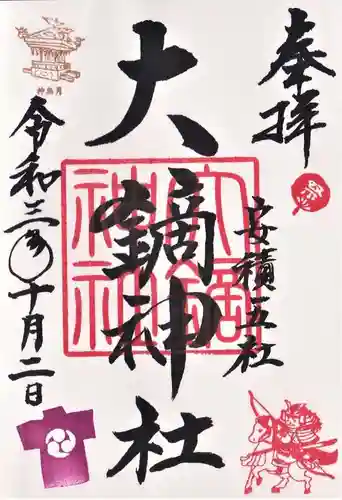 奉拝
安積五社
大鏑神社
大鏑神社
令和三年十月二日
神無月
祭